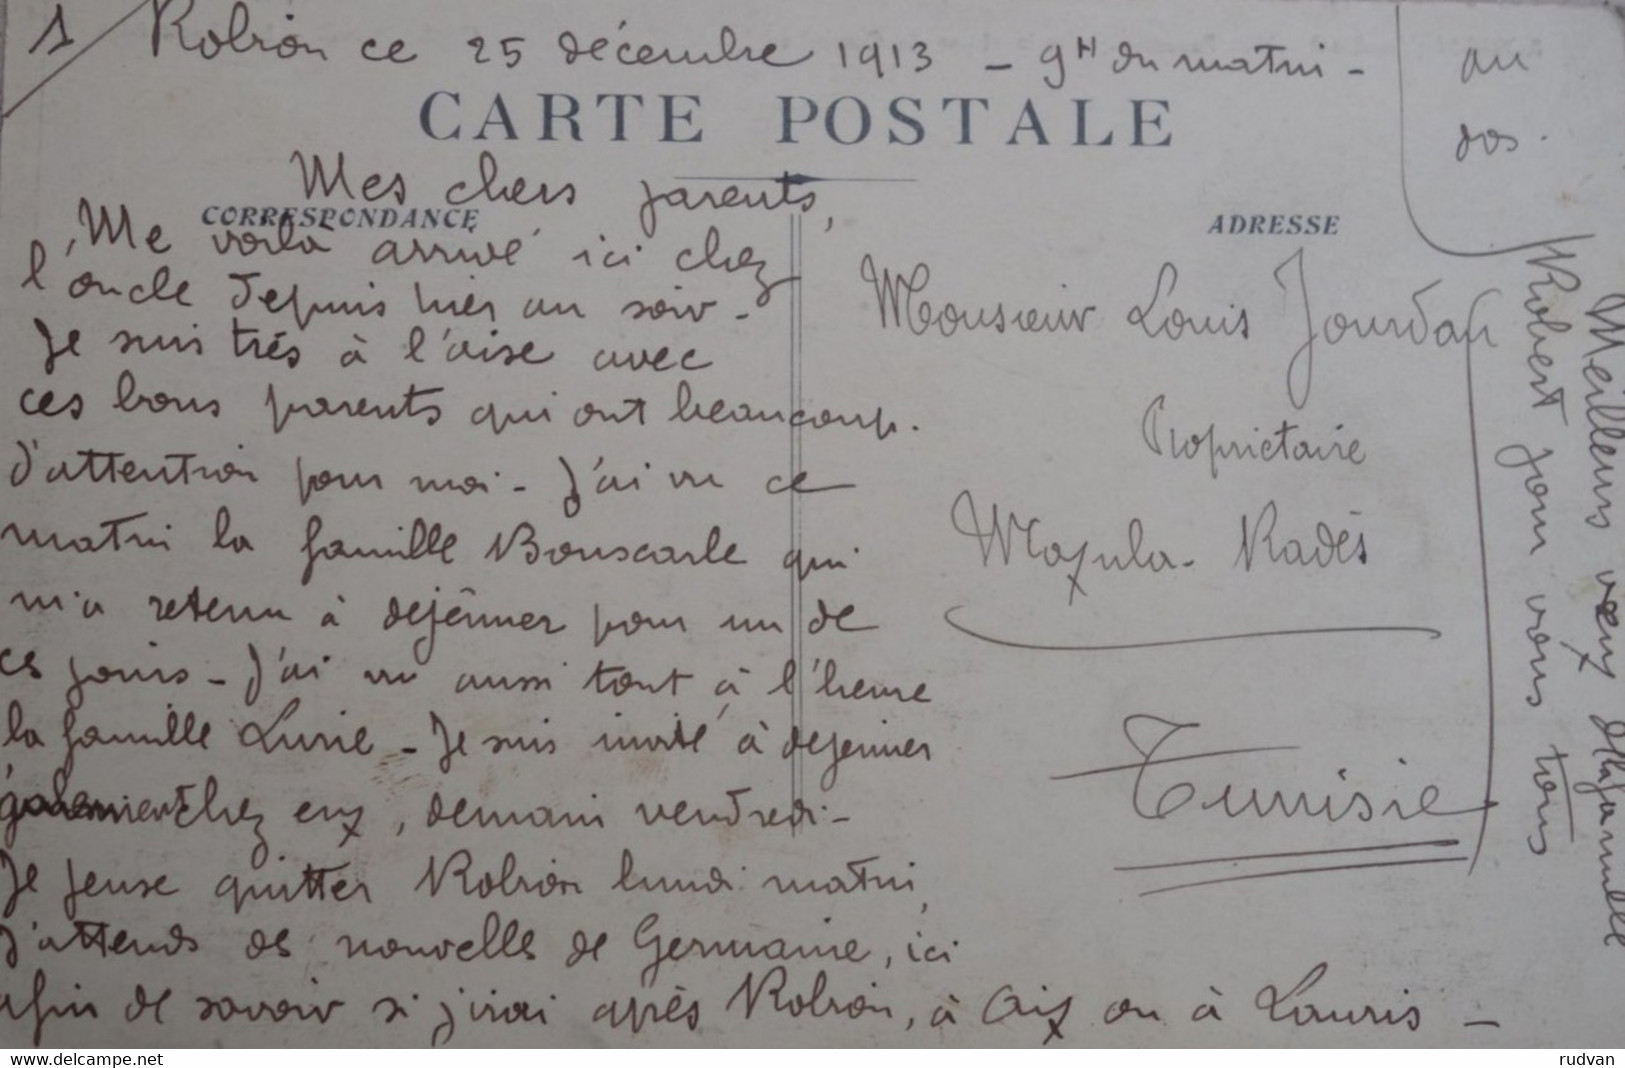 1 Robion ce 25 décembre 1913 - 9H du matin -
CARTE POSTALE
Mes chers parents,
CORRESPONDANCE
Me voilà arrivé ici chez
l'oncle depuis hier au soir -
Je suis très à l'aise avec
ces bons parents qui ont beaucoup
d'attention pour moi - J'ai vu ce
matin la famille Bouscarle qui
m'a retenu à dejêuner pour un de
ces jours - J'ai vu aussi tout à l'heure
la famille - Je suis invité à dejeuner
également chez eux, demain vendredi -
Je pense quitter Robion lundi matin,
J'attends de nouvelles de Germaine, ici
afin de savoir si j'irai après Robion, à Aix ou à Lauris -
au
dos.
ADRESSE
Monsieur Louis Jourdan
Propriétaire
Maxula-Radès
Tunisie
Meilleurs vœux famille
Robert pour vous tous
www.delcampe.net
rudvan